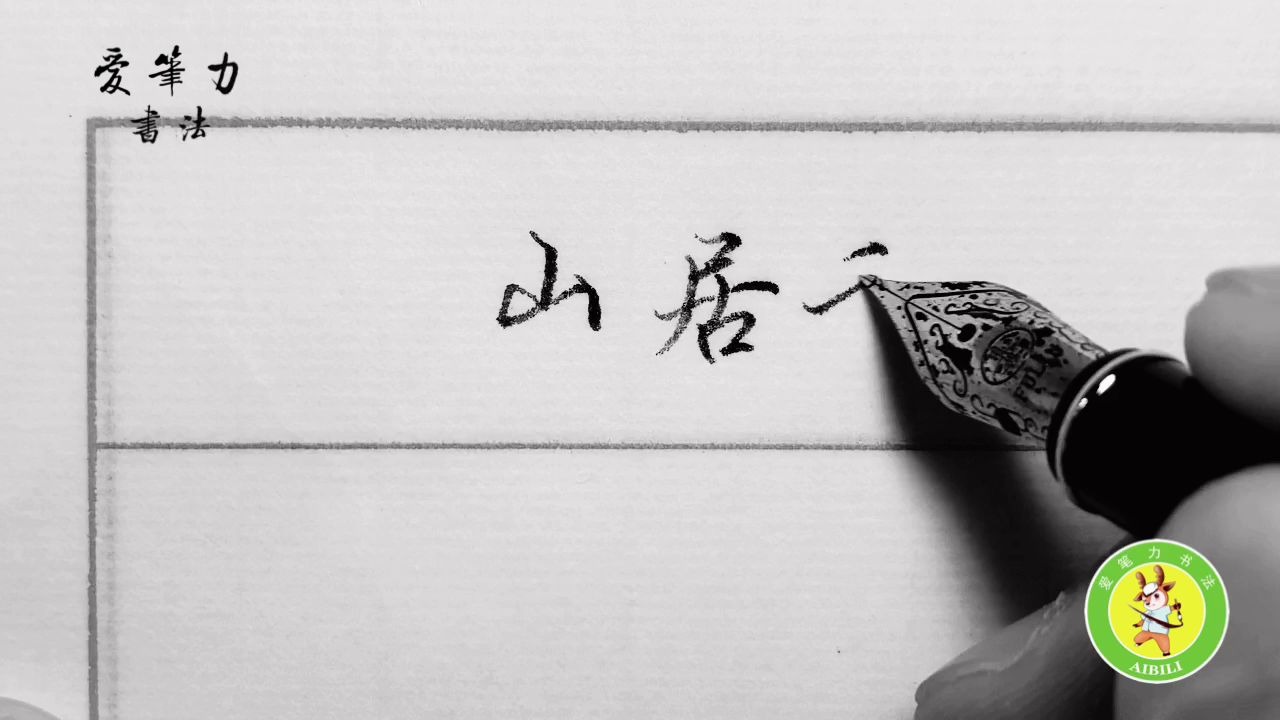 爱筆力
書法
山居
爱笔力书法
AIBILI